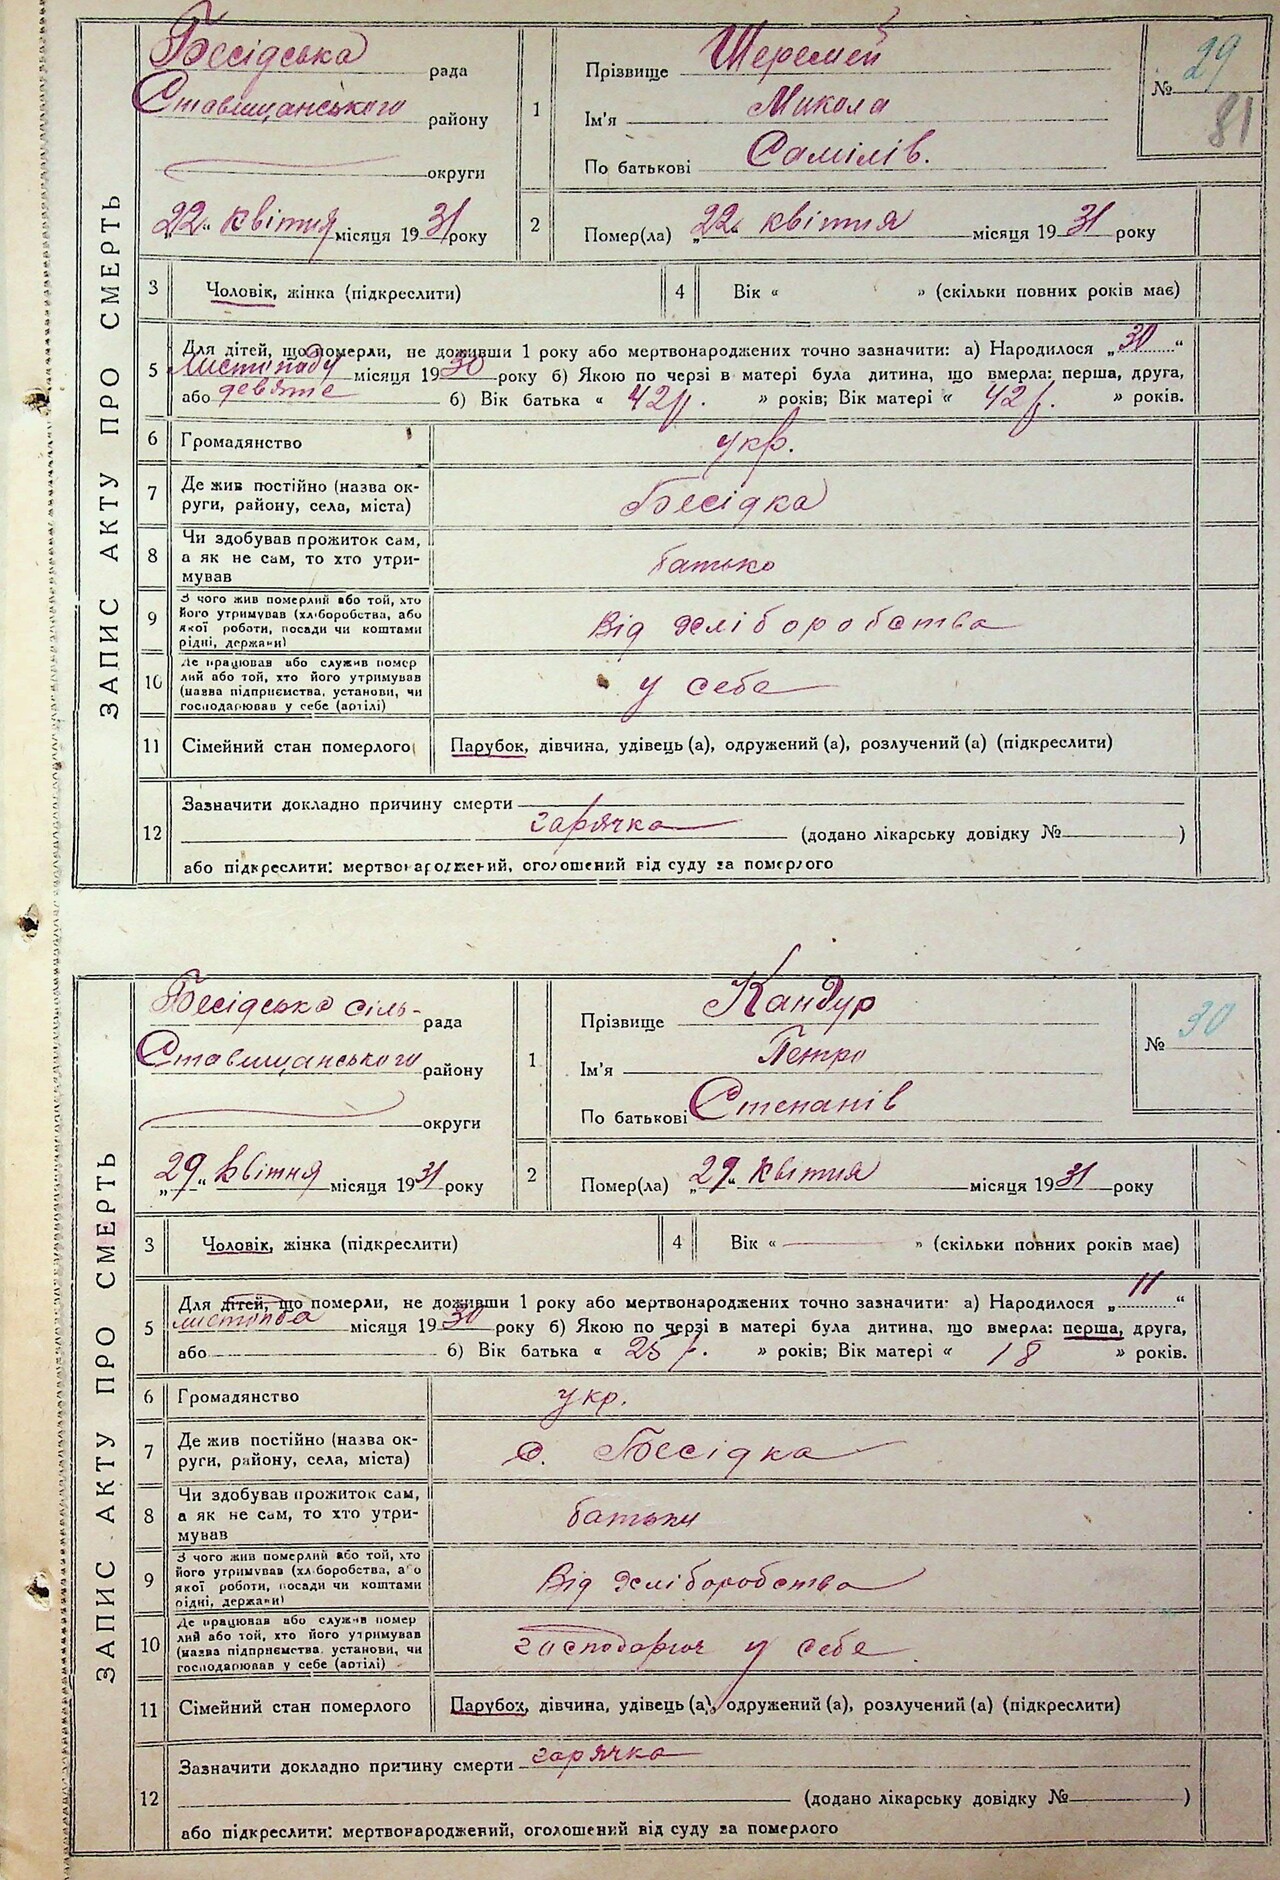 ЗАПИС АКТУ ПРО СМЕРТЬ
Бесідська рада
Ставищанського району
округи
„22“ квітня місяця 1931 року
1
Прізвище Шеремей
Ім'я Микола
По батькові Самілів.
№ 29
81
2
Помер(ла) „22“ квітня місяця 1931 року
3 Чоловік, жінка (підкреслити)
4 Вік « » (скільки повних років має)
5 Для дітей, що померли, не доживши 1 року або мертвонароджених точно зазначити: а) Народилося „30“
Листопаду місяця 1930 року б) Якою по черзі в матері була дитина, що вмерла: перша, друга,
або девяте б) Вік батька « 42 р. » років; Вік матері « 42 р. » років.
6 Громадянство укр.
7 Де жив постійно (назва ок-
руги, району, села, міста) Бесідка
8 Чи здобував прожиток сам,
а як не сам, то хто утри-
мував батько
9 З чого жив померлий або той, хто
його утримував (хліборобства, або
якої роботи, посади чи коштами
рідні, держави) Від хліборобства
10 Де працював або служив помер
лий або той, хто його утримував
(назва підприємства, установи, чи
господарював у себе (артілі) у себе
11 Сімейний стан померлого Парубок, дівчина, удівець (а), одружений (а), розлучений (а) (підкреслити)
12 Зазначити докладно причину смерти
гарячка (додано лікарську довідку № )
або підкреслити: мертвонароджений, оголошений від суду за померлого
ЗАПИС АКТУ ПРО СМЕРТЬ
Бесідська сіль- рада
Ставищанського району
округи
„29“ Квітня місяця 1931 року
1
Прізвище Кандур
Ім'я Петро
По батькові Степанів
№ 30
2
Помер(ла) „29“ квітня місяця 1931 року
3 Чоловік, жінка (підкреслити)
4 Вік « » (скільки повних років має)
5 Для дітей, що померли, не доживши 1 року або мертвонароджених точно зазначити: а) Народилося „11“
листопда місяця 1930 року б) Якою по черзі в матері була дитина, що вмерла: перша, друга,
або б) Вік батька « 25 р. » років; Вік матері « 18 » років.
6 Громадянство укр.
7 Де жив постійно (назва ок-
руги, району, села, міста) с. Бесідка
8 Чи здобував прожиток сам,
а як не сам, то хто утри-
мував батьки
9 З чого жив померлий або той, хто
його утримував (хліборобства, або
якої роботи, посади чи коштами
рідні, держави) Від хліборобства
10 Де працював або служив помер
лий або той, хто його утримував
(назва підприємства, установи, чи
господарював у себе (артілі) у себе
11 Сімейний стан померлого Парубок, дівчина, удівець (а), одружений (а), розлучений (а) (підкреслити)
12 Зазначити докладно причину смерти гарячка
(додано лікарську довідку № )
або підкреслити: мертвонароджений, оголошений від суду за померлого